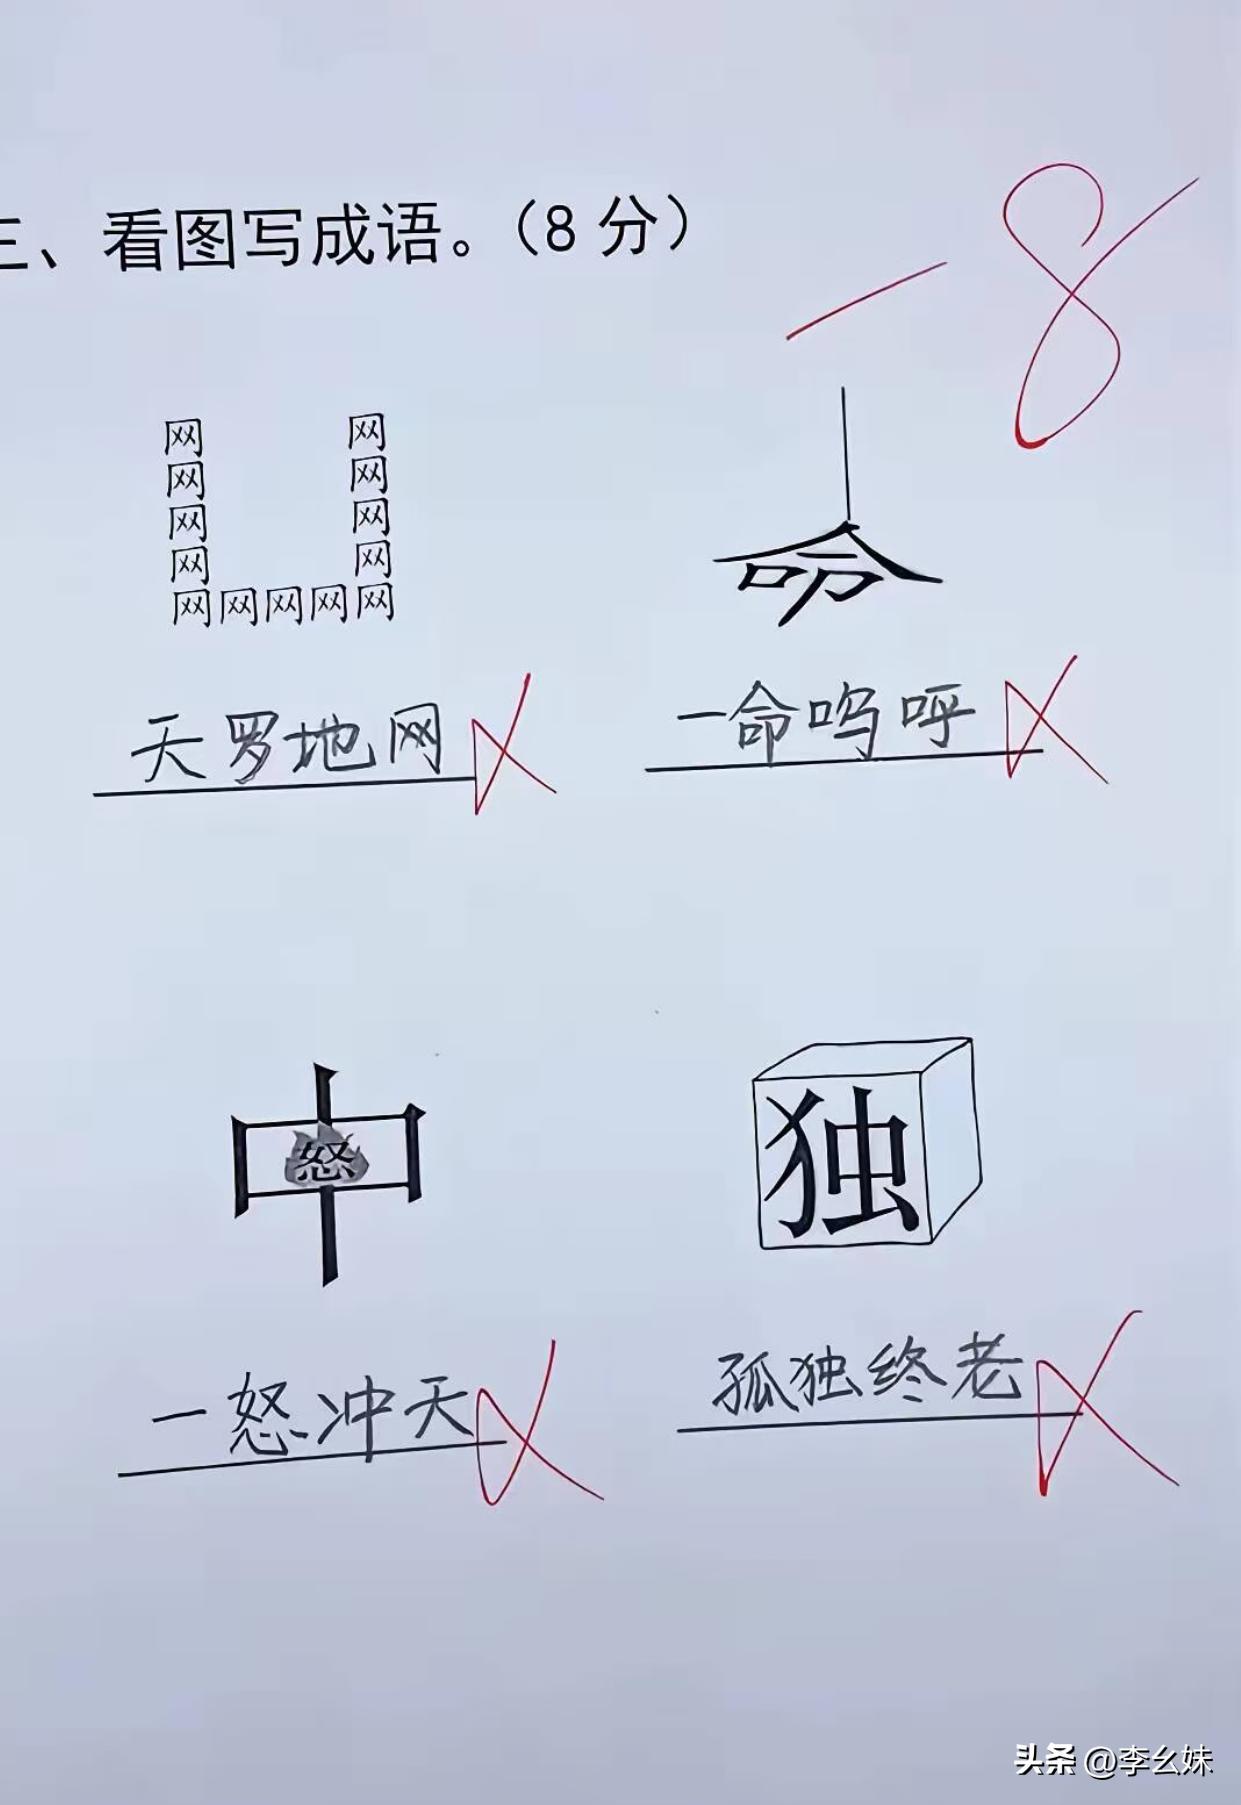 三、看图写成语。（8 分）
-8
网 网
网 网
网 网
网 网
网 网 网 网 网
命
天罗地网
一命呜呼
中
怒
独
一怒冲天
孤独终老
头条 @李幺妹